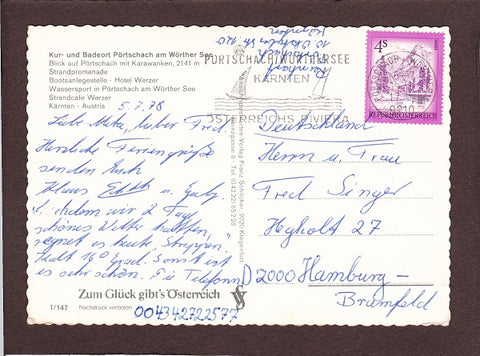 Kur- und Badeort Pörtschach am Wörther See
Blick auf Pörtschach mit Karawanken, 2141 m
Strandpromenade
Bootsanlegestelle · Hotel Werzer
Wassersport in Pörtschach am Wörther See
Strandcafe Werzer
Kärnten · Austria
5.7.78
Liebe Meta, lieber Fred.
Herzliche Feriengrüße
senden Euch
Klaus Edith u.
Nachdem wir 2 Tage
schönes Wetter hatten,
regnet es heute
16° Grad. Sonst ist
es sehr schön. Die Telefonn
Zum Glück gibt's Österreich
1/147
Nachdruck verboten
0043427222577
Verlag Franz Schilcher, 9020 Klagenfurt
PÖRTSCHACH/WÖRTHERSEE
KÄRNTEN
ÖSTERREICHS RIVIERA
10 Oktober Str. 120
Kärnten
4S
REPUBLIK ÖSTERREICH
9210
Deutschland
Herrn u. Frau
Fred Singer
27
D 2000 Hamburg-
Bramfeld